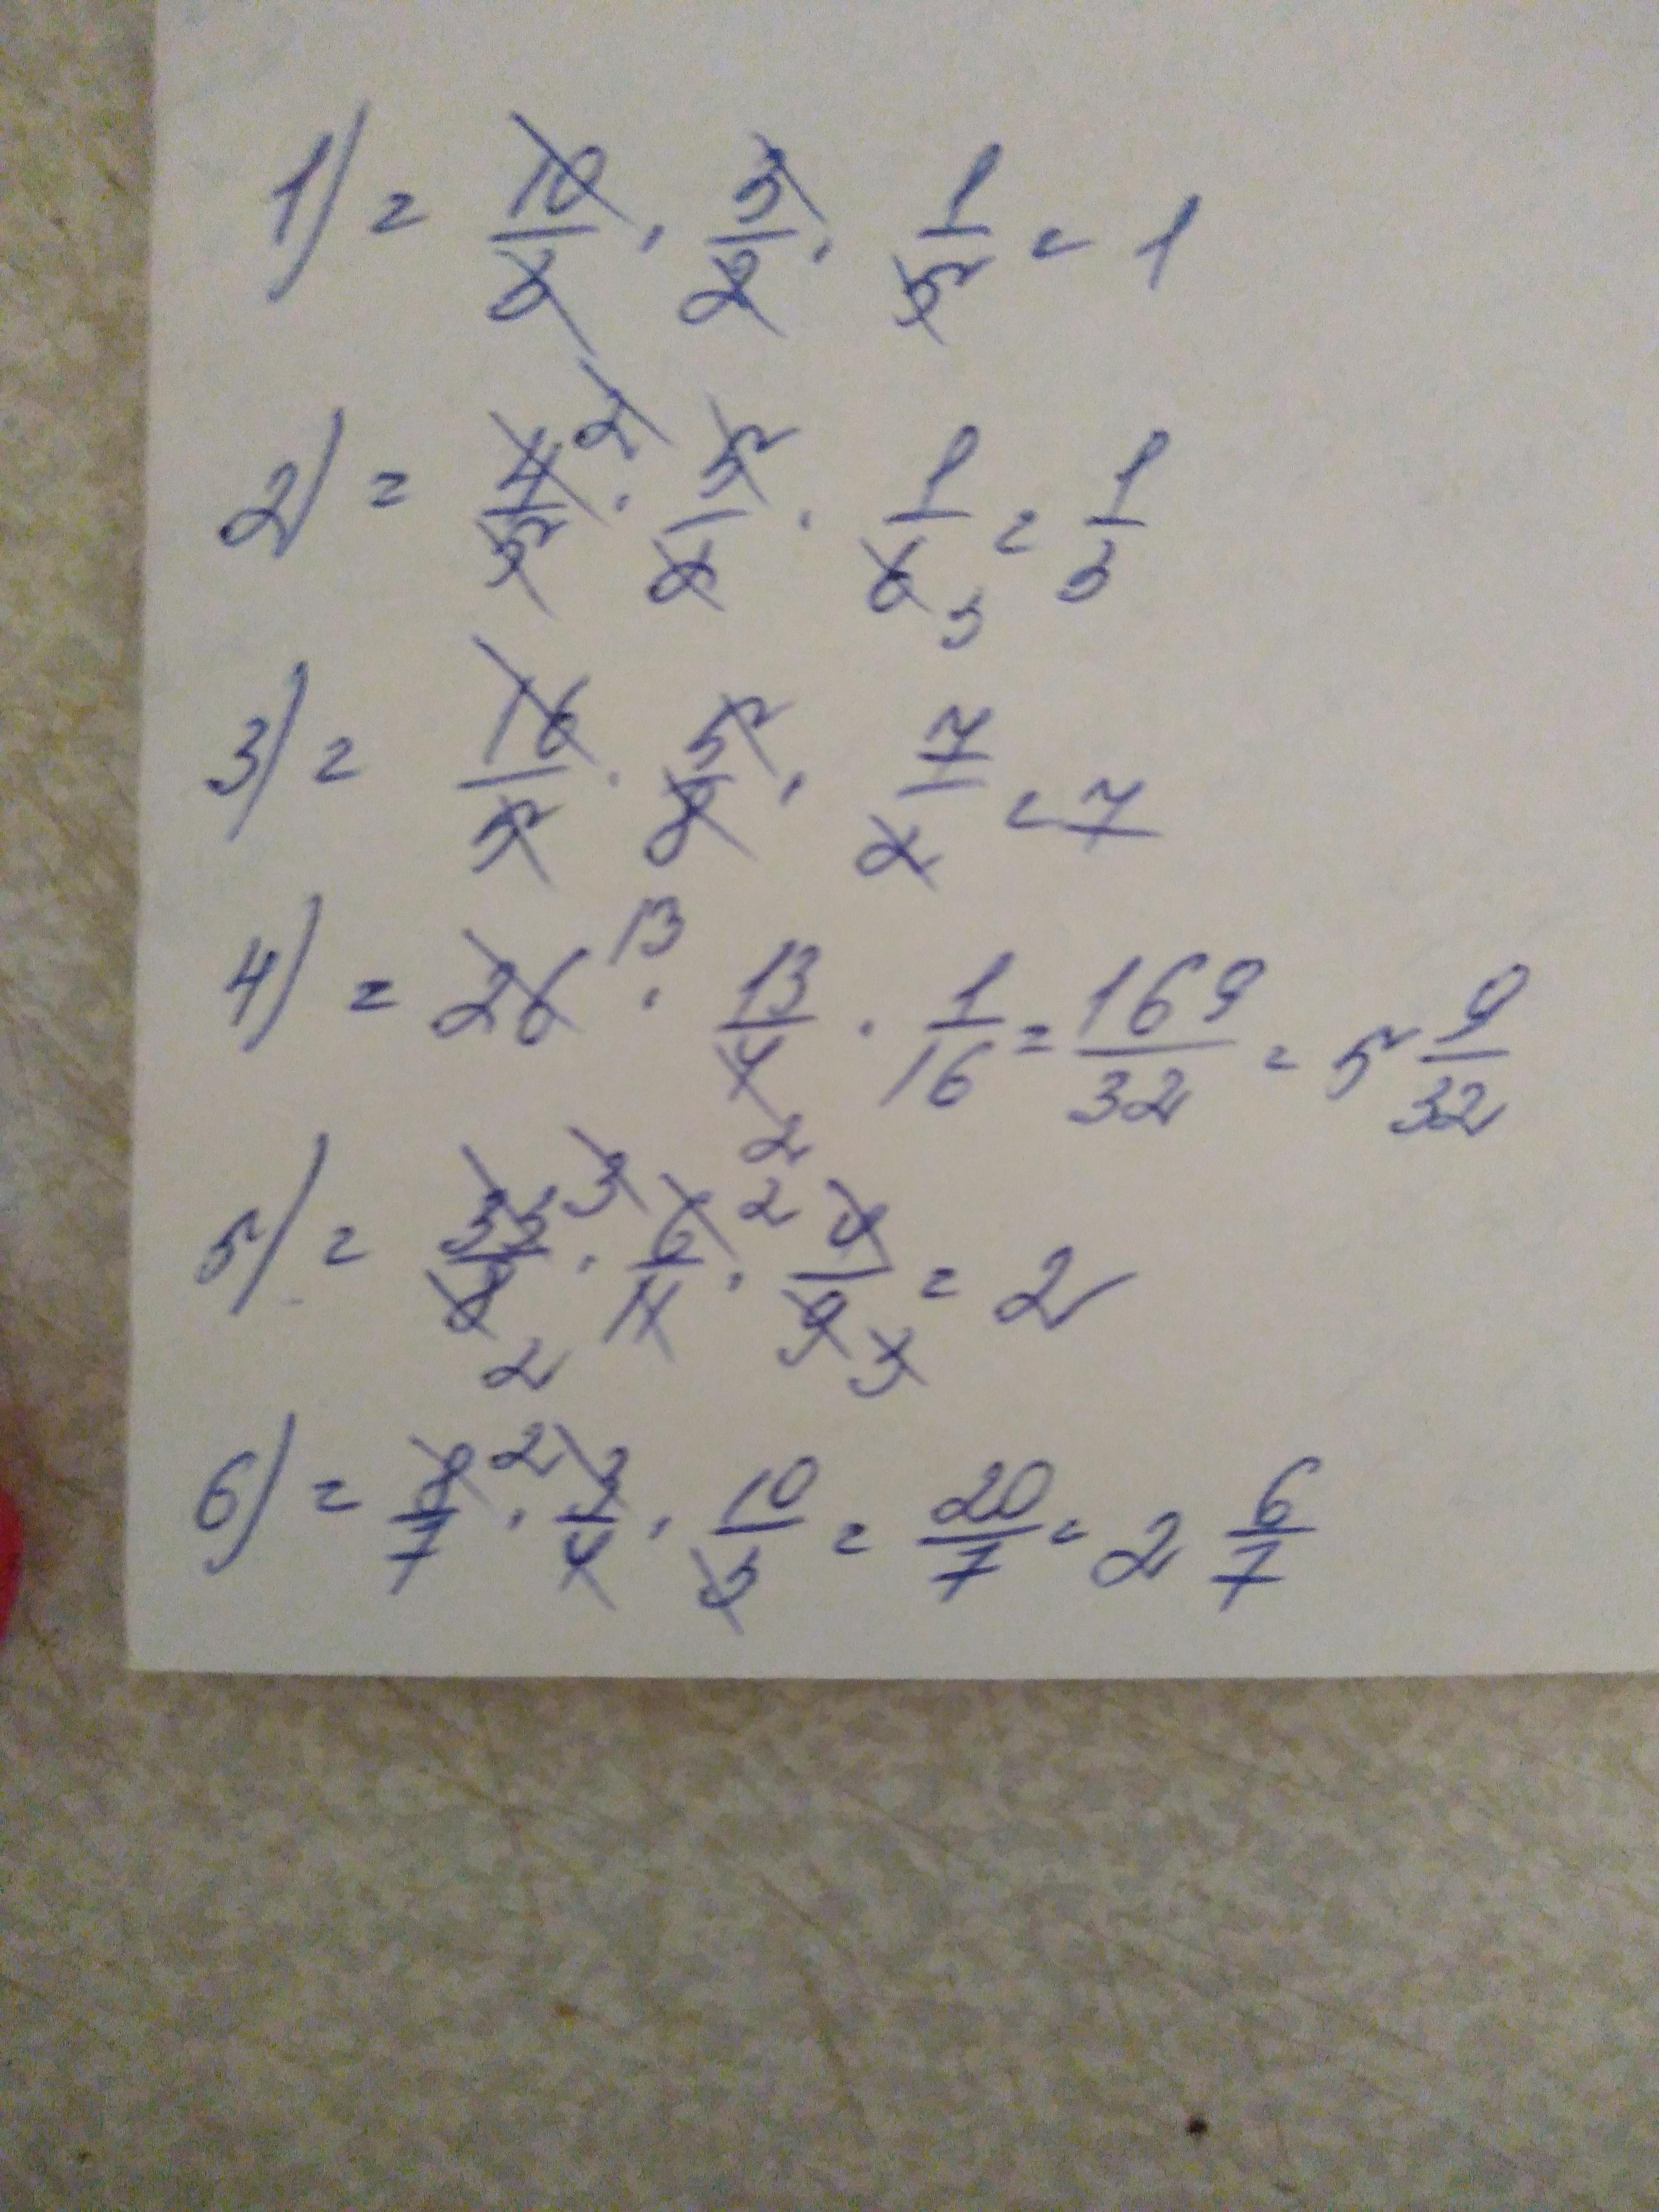 1) = 10/3 · 3/2 · 1/5 = 1
2) = 4/5 2 · 5/2 · 1/6 3 = 1/3
3) = 16/5 · 5/8 · 7/2 = 7
4) = 26 13 · 13/4 2 · 1/16 = 169/32 = 5 9/32
5) = 33/8 2 3 · 6/11 2 · 4/9 3 = 2
6) = 8/7 2 · 3/4 · 10/3 = 20/7 = 2 6/7